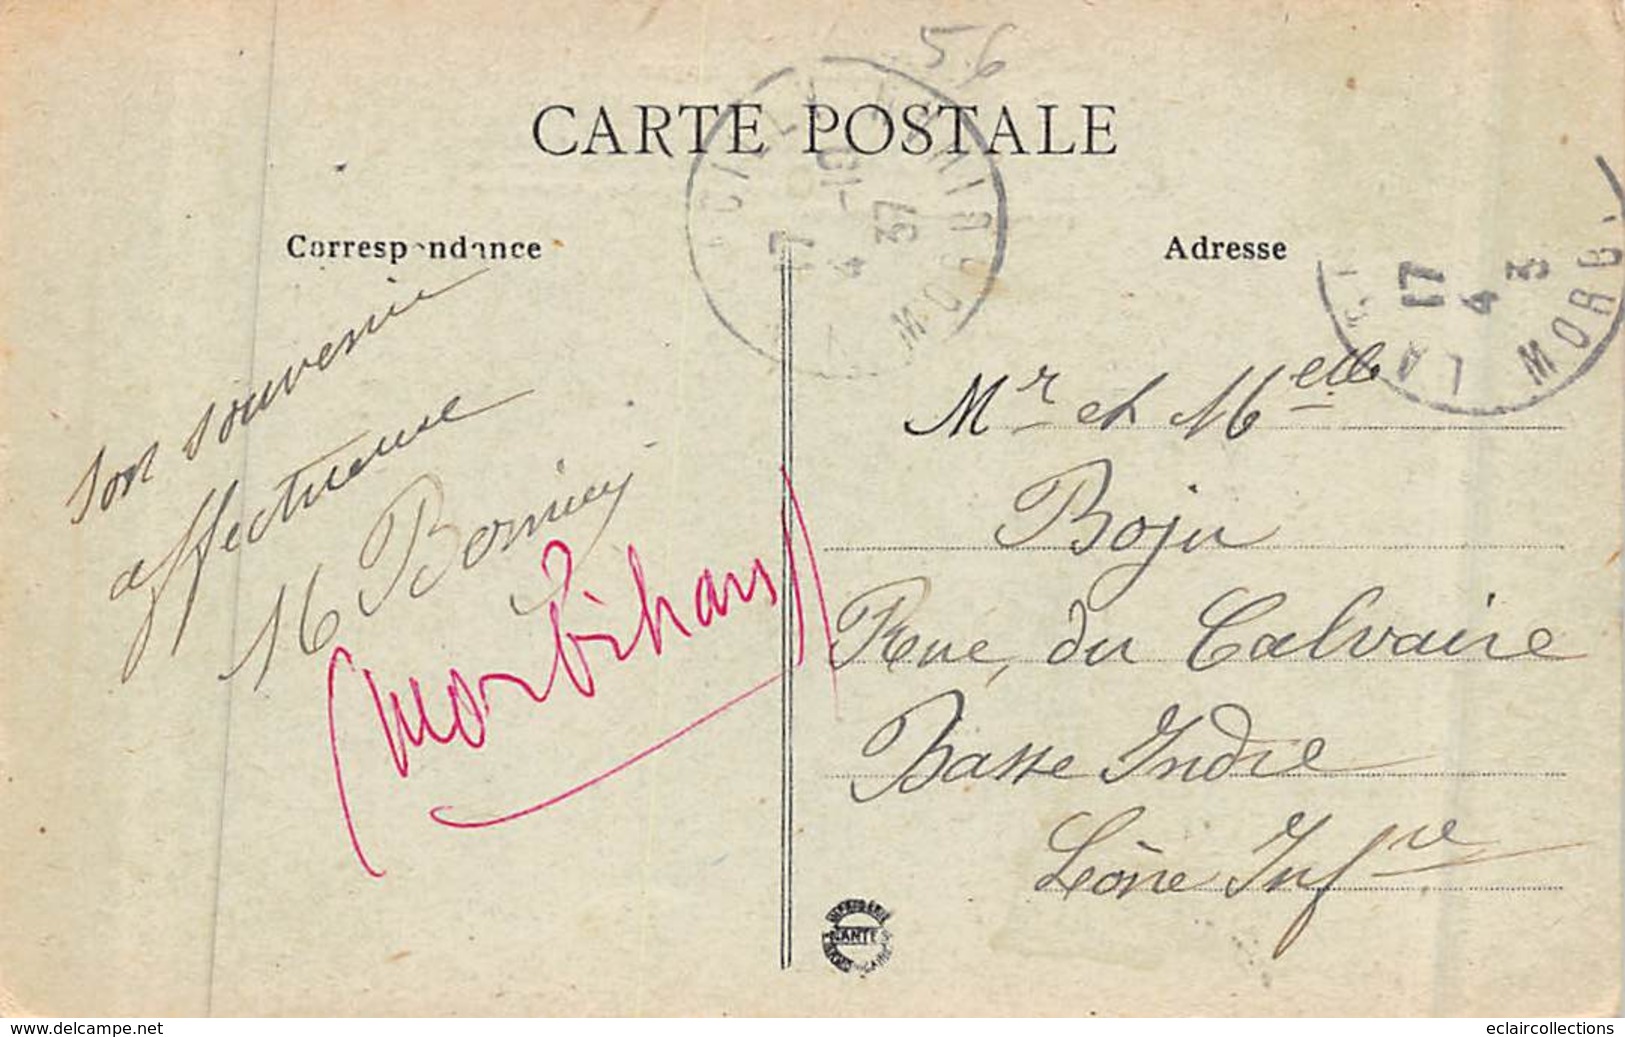 56
CARTE POSTALE
Correspondance
Adresse
17
4
37
MORB
17
4
3
MORB
LA
son souvenir
affectueuse
M
(Morbihan)
Mr et Melle
Boju
Rue, du Calvaire
Basse Indre
Loire Infre
NANTES
www.delcampe.net
eclaircollections